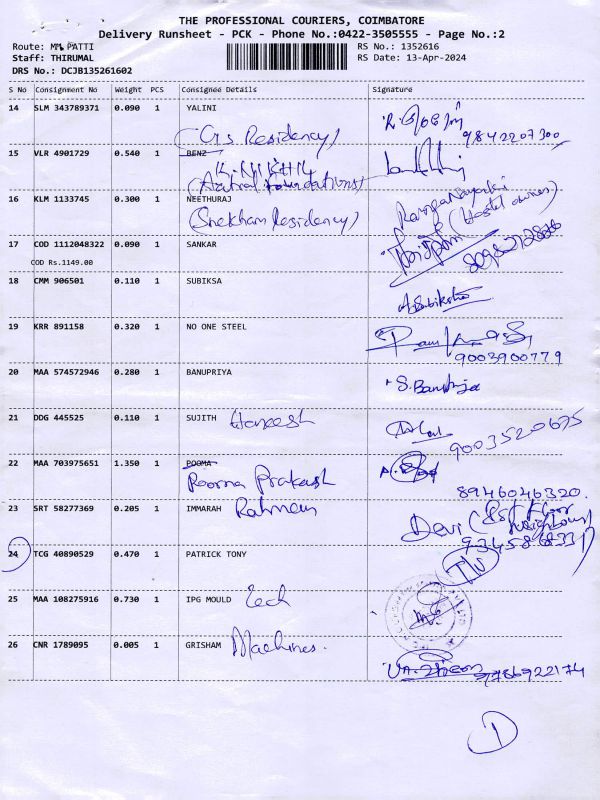 THE PROFESSIONAL COURIERS, COIMBATORE
Delivery Runsheet - PCK - Phone No.:0422-3505555 - Page No.:2
Route: MM PATTI
RS No.: 1352616
Staff: THIRUMAL
RS Date: 13-Apr-2024
DRS No.: DCJB135261602
S No Consignment No Weight PCS Consignee Details Signature
14 SLM 343789371 0.090 1 YALINI
9842207300
(G.S. Residency)
15 VLR 4901729 0.540 1 BENZ
K. NIKHIL
16 KLM 1133745 0.300 1 NEETHURAJ
(Hostel owner)
(Shekham Residency)
17 COD 1112048322 0.090 1 SANKAR
COD Rs.1149.00
18 CMM 906501 0.110 1 SUBIKSA
19 KRR 891158 0.320 1 NO ONE STEEL
9003900779
20 MAA 574572946 0.280 1 BANUPRIYA
S. Banupriya
21 DDG 445525 0.110 1 SUJITH Hareesh
9003520675
22 MAA 703975651 1.350 1 POOMA
Poorna Prakash
8946046320.
23 SRT 58277369 0.205 1 IMMARAH Rahman
Devi (1st Floor
24 TCG 40890529 0.470 1 PATRICK TONY
25 MAA 108275916 0.730 1 IPG MOULD Tech
26 CNR 1789095 0.005 1 GRISHAM Machines.
9786922174
1